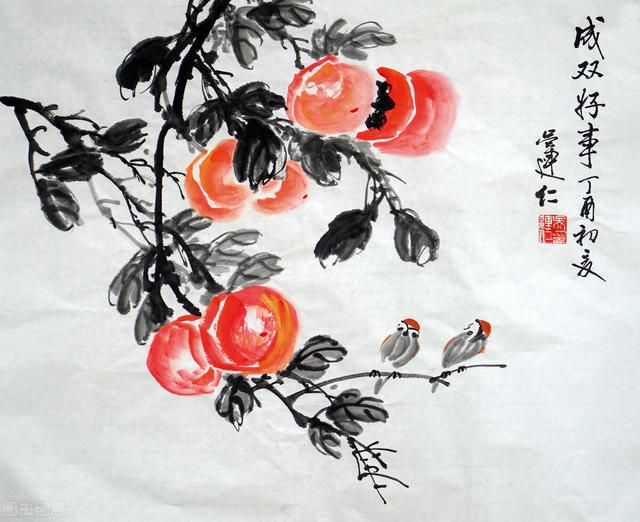 成双好事丁酉初夏
建仁
图虫创意